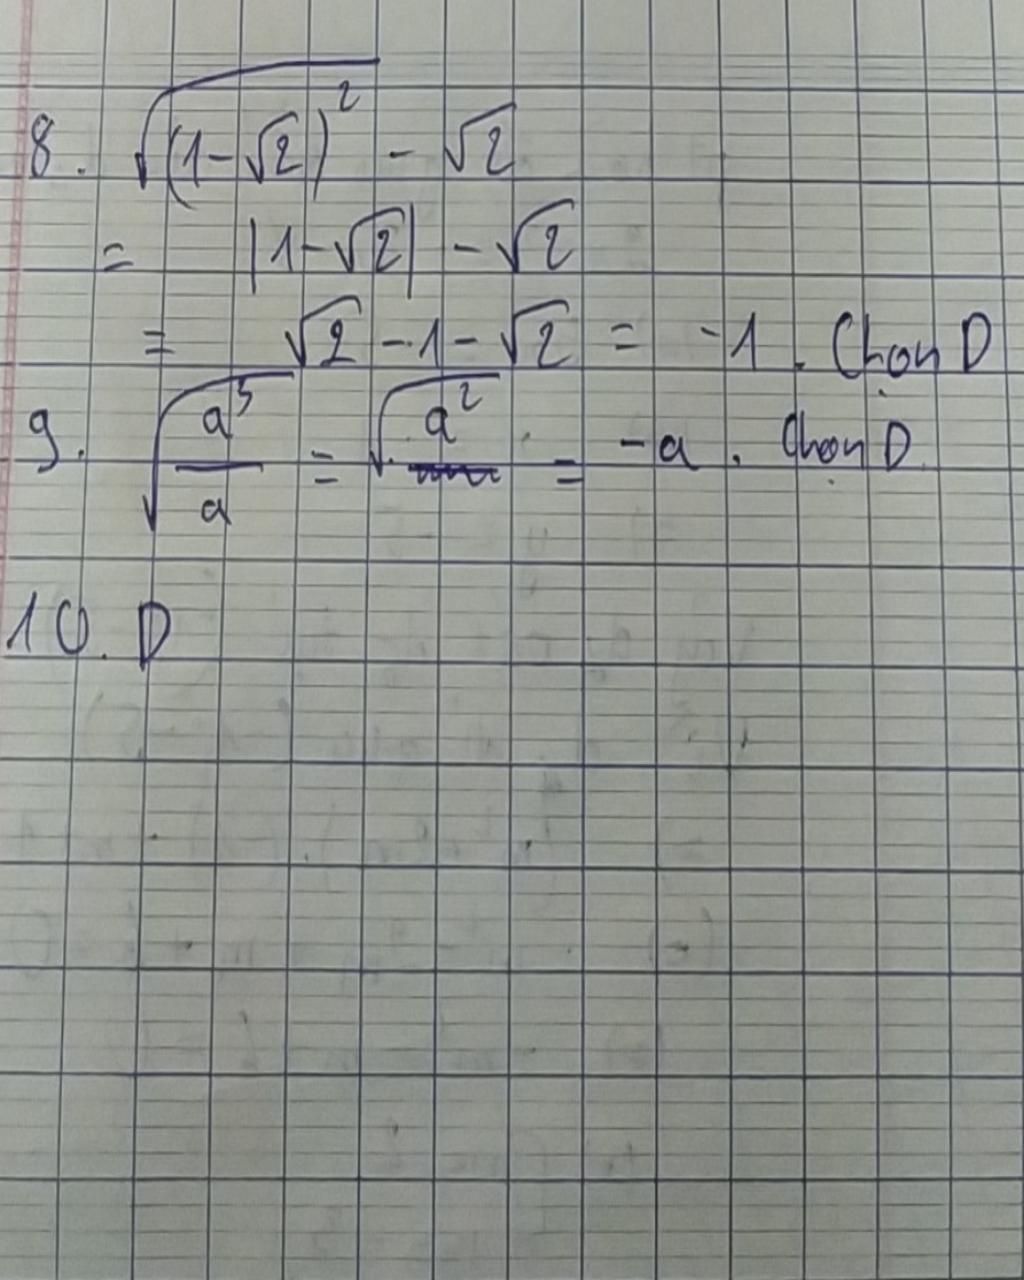 8. √(1-√2)² - √2
= |1-√2| - √2
= √2 - 1 - √2 = -1. Chọn D
9. √(a³/a) = √a² = -a. Chọn D.
10. D